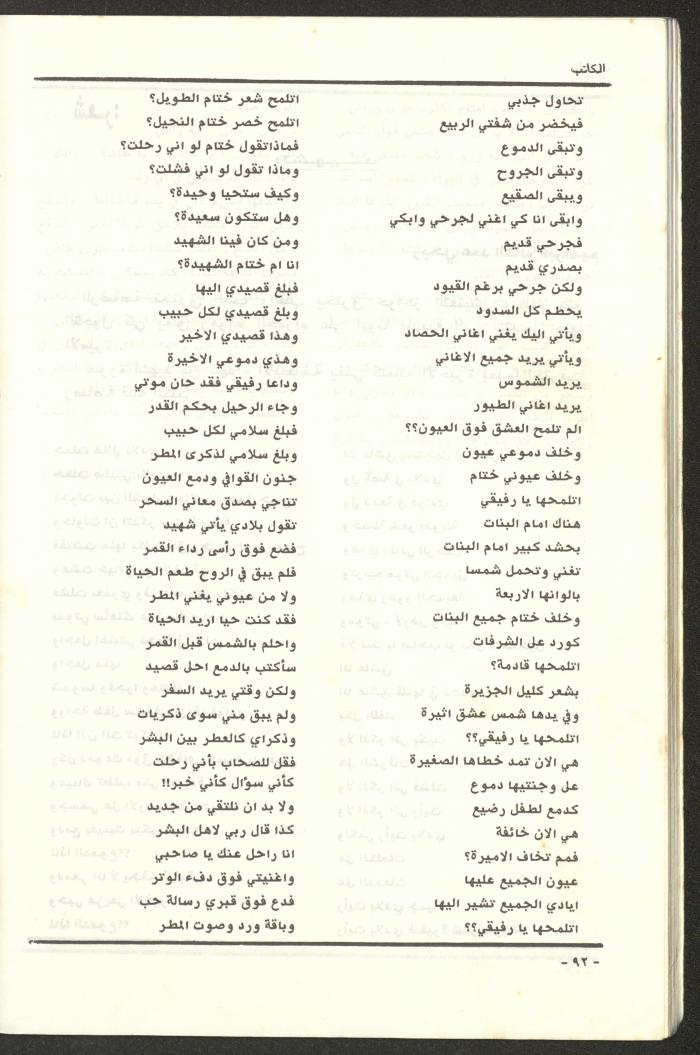 الكاتب
تحاول جذبي
فيخضر من شفتي الربيع
وتبقى الدموع
وتبقى الجروح
ويبقى الصقيع
وابقى انا كي اغني لجرحي وابكي
فجرحي قديم
بصدري قديم
ولكن جرحي برغم القيود
يحطم كل السدود
ويأتي اليك يغني اغاني الحصاد
ويأتي يريد جميع الاغاني
يريد الشموس
يريد اغاني الطيور
الم تلمح العشق فوق العيون؟؟
وخلف دموعي عيون
وخلف عيوني ختام
اتلمحها يا رفيقي
هناك امام البنات
بحشد كبير امام البنات
تغني وتحمل شمسا
بالوانها الاربعة
وخلف ختام جميع البنات
كورد عل الشرفات
اتلمحها قادمة؟
بشعر كليل الجزيرة
وفي يدها شمس عشق اثيرة
اتلمحها يا رفيقي؟؟
هي الان تمد خطاها الصغيرة
عل وجنتيها دموع
كدمع لطفل رضيع
هي الان خائفة
فمم تخاف الاميرة؟
عيون الجميع عليها
ايادي الجميع تشير اليها
اتلمحها يا رفيقي؟؟
اتلمح شعر ختام الطويل؟
اتلمح خصر ختام النحيل؟
فماذاتقول ختام لو اني رحلت؟
وماذا تقول لو اني فشلت؟
وكيف ستحيا وحيدة؟
وهل ستكون سعيدة؟
ومن كان فينا الشهيد
انا ام ختام الشهيدة؟
فبلغ قصيدي اليها
وبلغ قصيدي لكل حبيب
وهذا قصيدي الاخير
وهذي دموعي الاخيرة
وداعا رفيقي فقد حان موتي
وجاء الرحيل بحكم القدر
فبلغ سلامي لكل حبيب
وبلغ سلامي لذكرى المطر
جنون القوافي ودمع العيون
تناجي بصدق معاني السحر
تقول بلادي يأتي شهيد
فضع فوق رأسى رداء القمر
فلم يبق في الروح طعم الحياة
ولا من عيوني يغني المطر
فقد كنت حيا اريد الحياة
واحلم بالشمس قبل القمر
سأكتب بالدمع احل قصيد
ولكن وقتي يريد السفر
ولم يبق مني سوى ذكريات
وذكراي كالعطر بين البشر
فقل للصحاب بأني رحلت
كأني سؤال كأني خبر!!
ولا بد ان نلتقي من جديد
كذا قال ربي لاهل البشر
انا راحل عنك يا صاحبي
واغنيتي فوق دفء الوتر
فدع فوق قبري رسالة حب
وباقة ورد وصوت المطر
- ٩٢ -